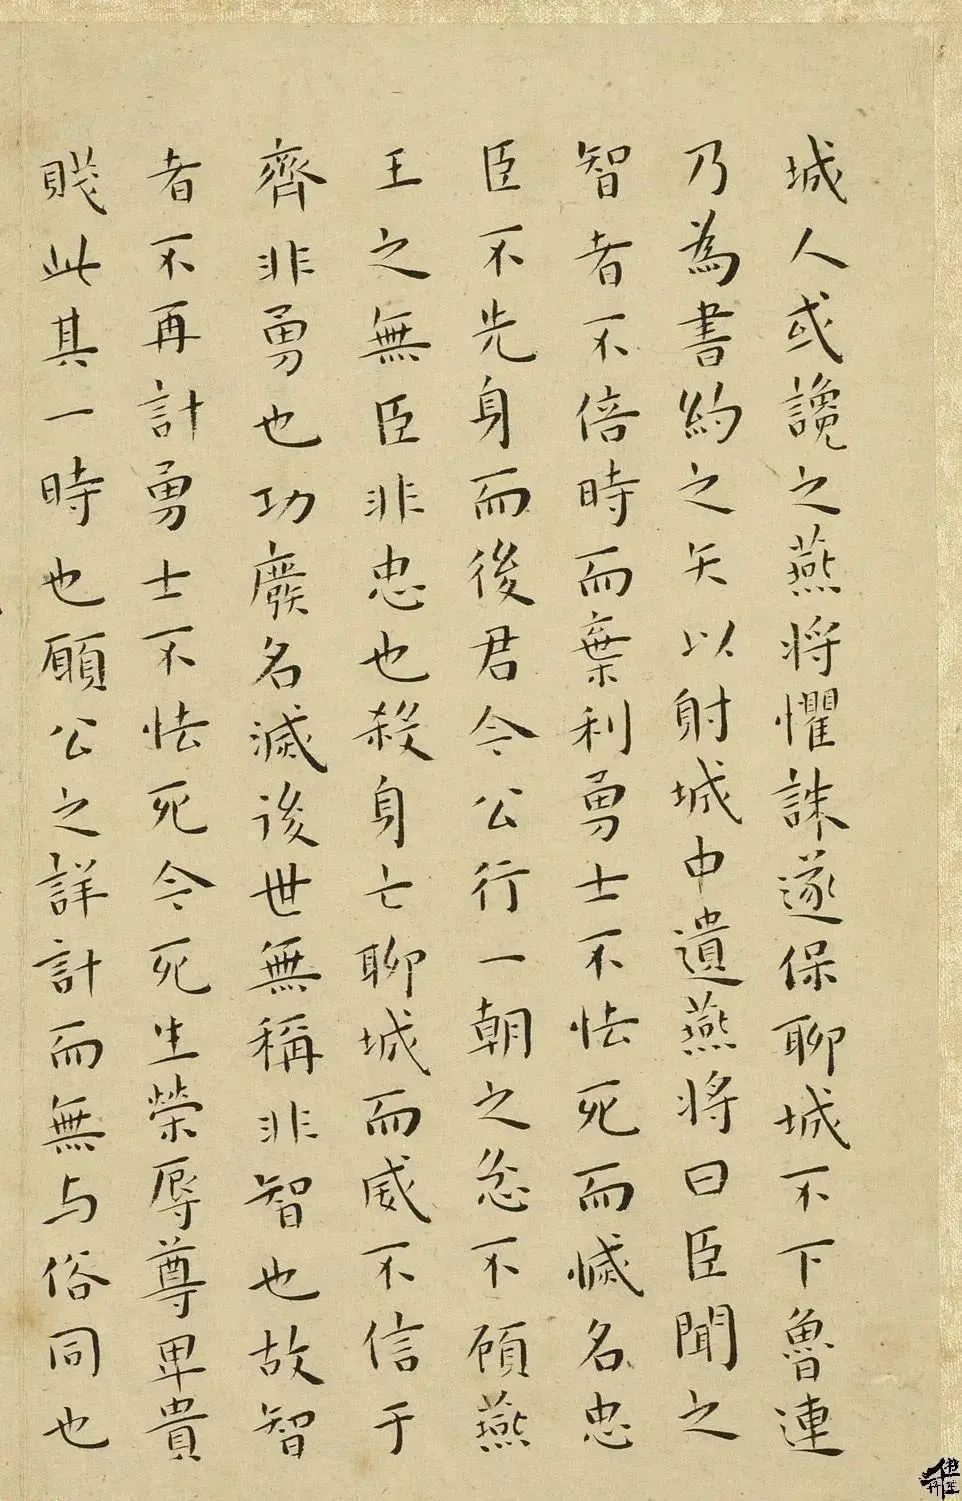 城人或讒之燕将懼誅遂保聊城不下魯連
乃為書約之矢以射城中遺燕将曰臣聞之
智者不倍時而棄利勇士不怯死而滅名忠
臣不先身而後君今公行一朝之忿不顧燕
王之無臣非忠也殺身亡聊城而威不信于
齊非勇也功廢名滅後世無稱非智也故智
者不再計勇士不怯死今死生榮辱尊卑貴
賤此其一時也願公之詳計而無与俗同也